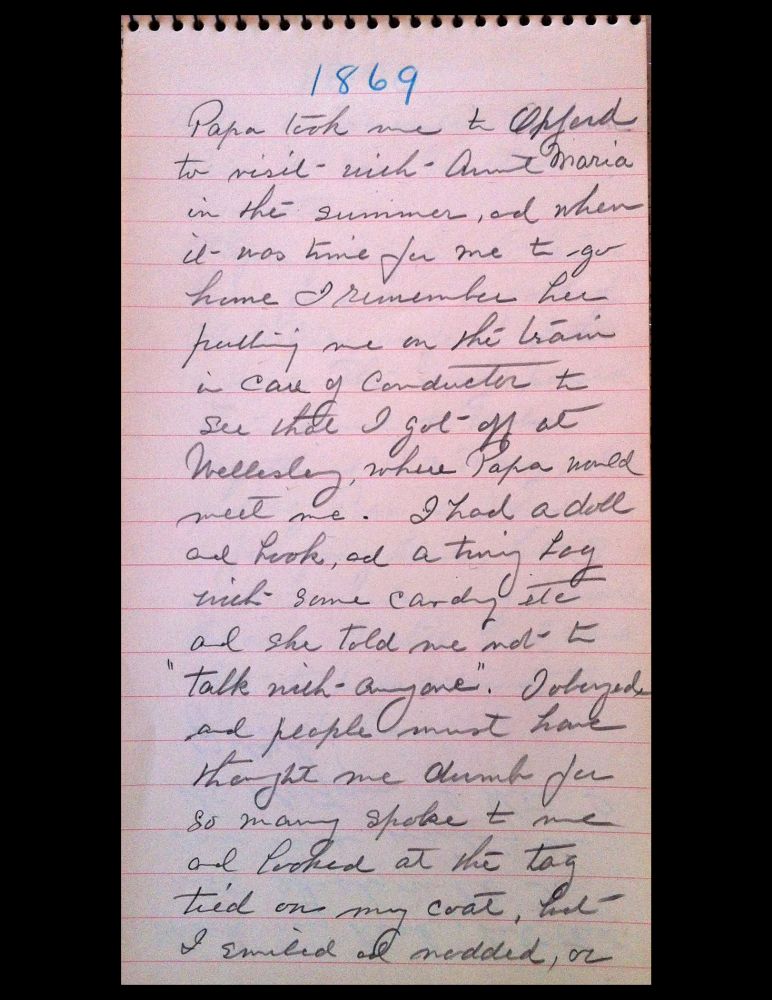 1869
Papa took me to Opford
to visit with Aunt Maria
in the summer, and when
it was time for me to go
home I remember her
putting me on the train
in care of Conductor to
see that I got off at
Wellesley, where Papa would
meet me. I had a doll
and book, and a tiny bag
with some candy etc
and she told me not to
"talk with anyone". I obeyed
and people must have
thought me dumb for
so many spoke to me
and looked at the tag
tied on my coat, but
I smiled and nodded, or